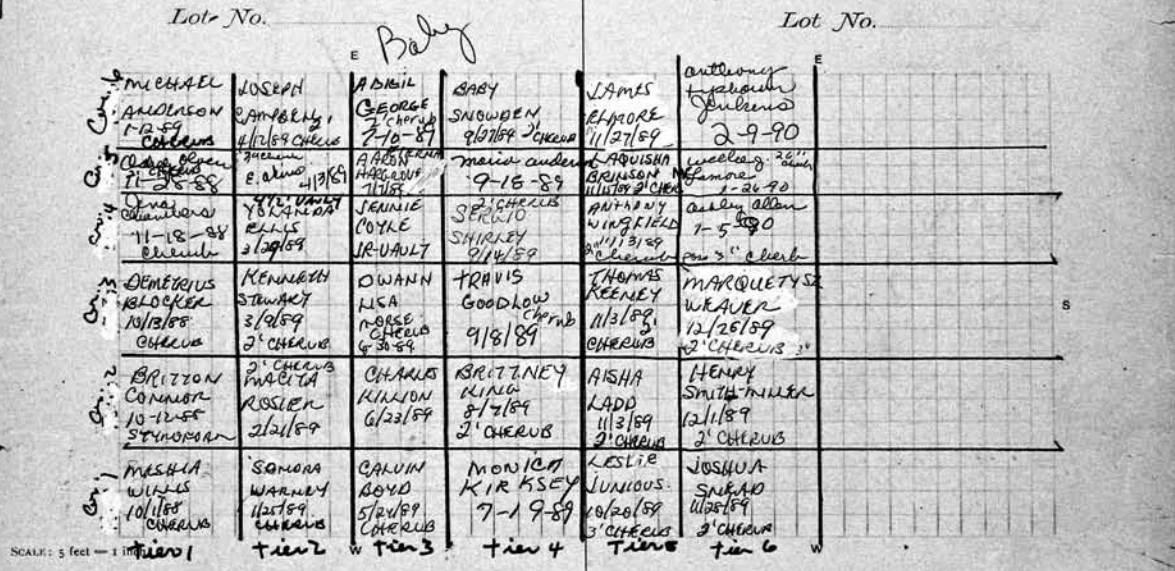 Lot No.
Lot No.
Baby
E
E
Gr. 6
MICHAEL
ANDERSON
1-12-89
CHERUB
JOSEPH
CAMPBELL
4/12/89 CHERUB
ABIGIL
GEORGE
2' Cherub
7-10-89
BABY
SNOWDEN
9/27/89 2' CHERUB
JAMES
ELMORE
11/27/89
anthony
Jenkins
2-9-90
Gr. 5
11-28-88
E.
4/3/89
AARON
HARGROVE
7/7/89
maria anderson
9-18-89
LAQUISHA
BRINSON
11/15/89 2' CHER
Lamore
1-26-90
Gr. 4
Chambers
11-18-88
Cherub
4 1/2' VAULT
YOLANDA
ELLIS
3/29/89
JENNIE
COYLE
JR-VAULT
2' CHERUB
SHIRLEY
9/14/89
ANTHONY
WINGFIELD
11/13/89
Cherub
ashley allen
1-5-90
3" Cherb
Gr. 3
DEMETRIUS
BLOCKER
10/13/88
CHERUB
KENNETH
STEWART
3/9/89
2' CHERUB
DWANN
LISA
MORSE
CHERUB
6-30-89
TRAVIS
GOODLOW
Cherub
9/8/89
THOMAS
KEENEY
11/3/89
2'
CHERUB
MARQUETYSZ
WEAVER
12/26/89
2' CHERUB 3"
S
Gr. 2
BRITTON
CONNOR
10-12-88
STYROFORM
2' CHERUB
MACITA
ROSIER
2/21/89
CHARLES
KILLION
6/23/89
BRITTNEY
KING
8/7/89
2' CHERUB
AISHA
LADD
11/3/89
2' CHERUB
HENRY
SMITH-MILLER
12/1/89
2' CHERUB
Gr. 1
MESHIA
WILLIS
10/1/88
CHERUB
SANDRA
WARNEY
1/25/89
CHERUB
CALVIN
BOYD
5/24/89
CHERUB
MONICA
KIRKSEY
7-19-89
LESLIE
JUNIOUS
10/20/89
3' CHERUB
JOSHUA
SNEAD
11/28/89
2' CHERUB
SCALE: 5 feet — 1 inch
Tier 1
Tier 2
W
Tier 3
Tier 4
Tier 5
Tier 6
W